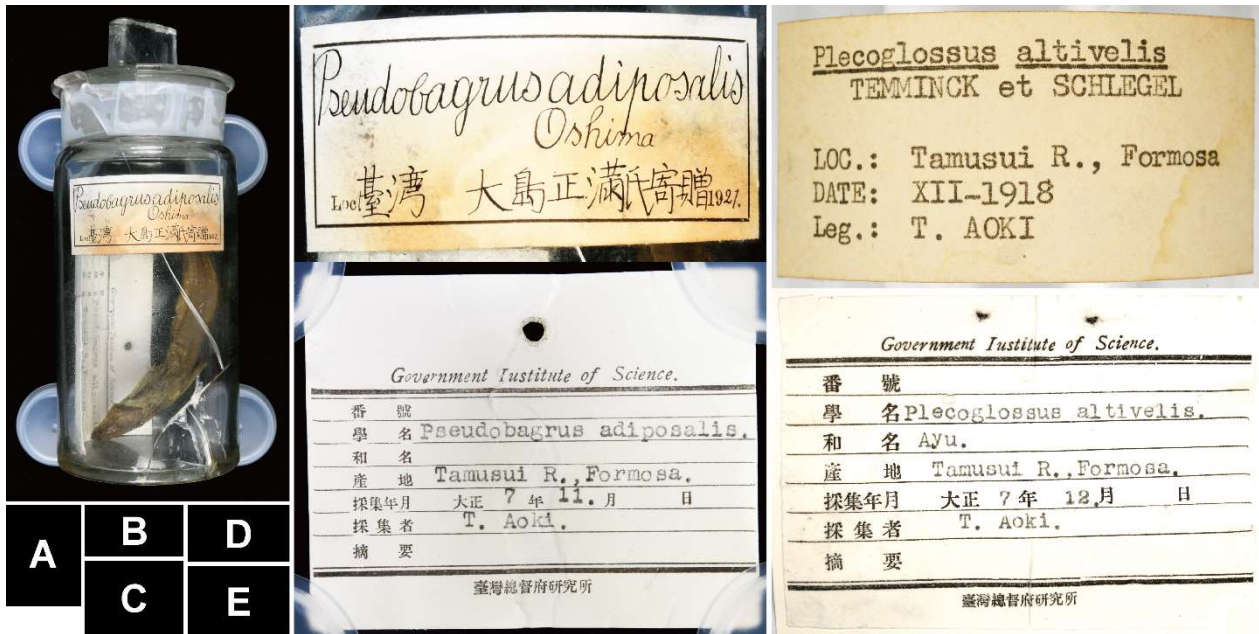 Pseudobagrus adiposalis
Oshima
Loc. 臺湾 大島正滿氏寄贈 1927.
Pseudobagrus adiposalis
Oshima
Loc. 臺湾 大島正滿氏寄贈 1927.
Government Iustitute of Science.
番 號
學 名 Pseudobagrus adiposalis.
和 名
產 地 Tamusui R., Formosa.
採集年月 大正 7 年 11. 月 日
採集者 T. Aoki.
摘 要
臺灣總督府研究所
Plecoglossus altivelis
TEMMINCK et SCHLEGEL
LOC.: Tamusui R., Formosa
DATE: XII-1918
Leg.: T. AOKI
Government Iustitute of Science.
番 號
學 名 Plecoglossus altivelis.
和 名 Ayu.
產 地 Tamusui R.,Formosa.
採集年月 大正 7 年 12.月 日
採集者 T. Aoki.
摘 要
臺灣總督府研究所
A
B
D
C
E